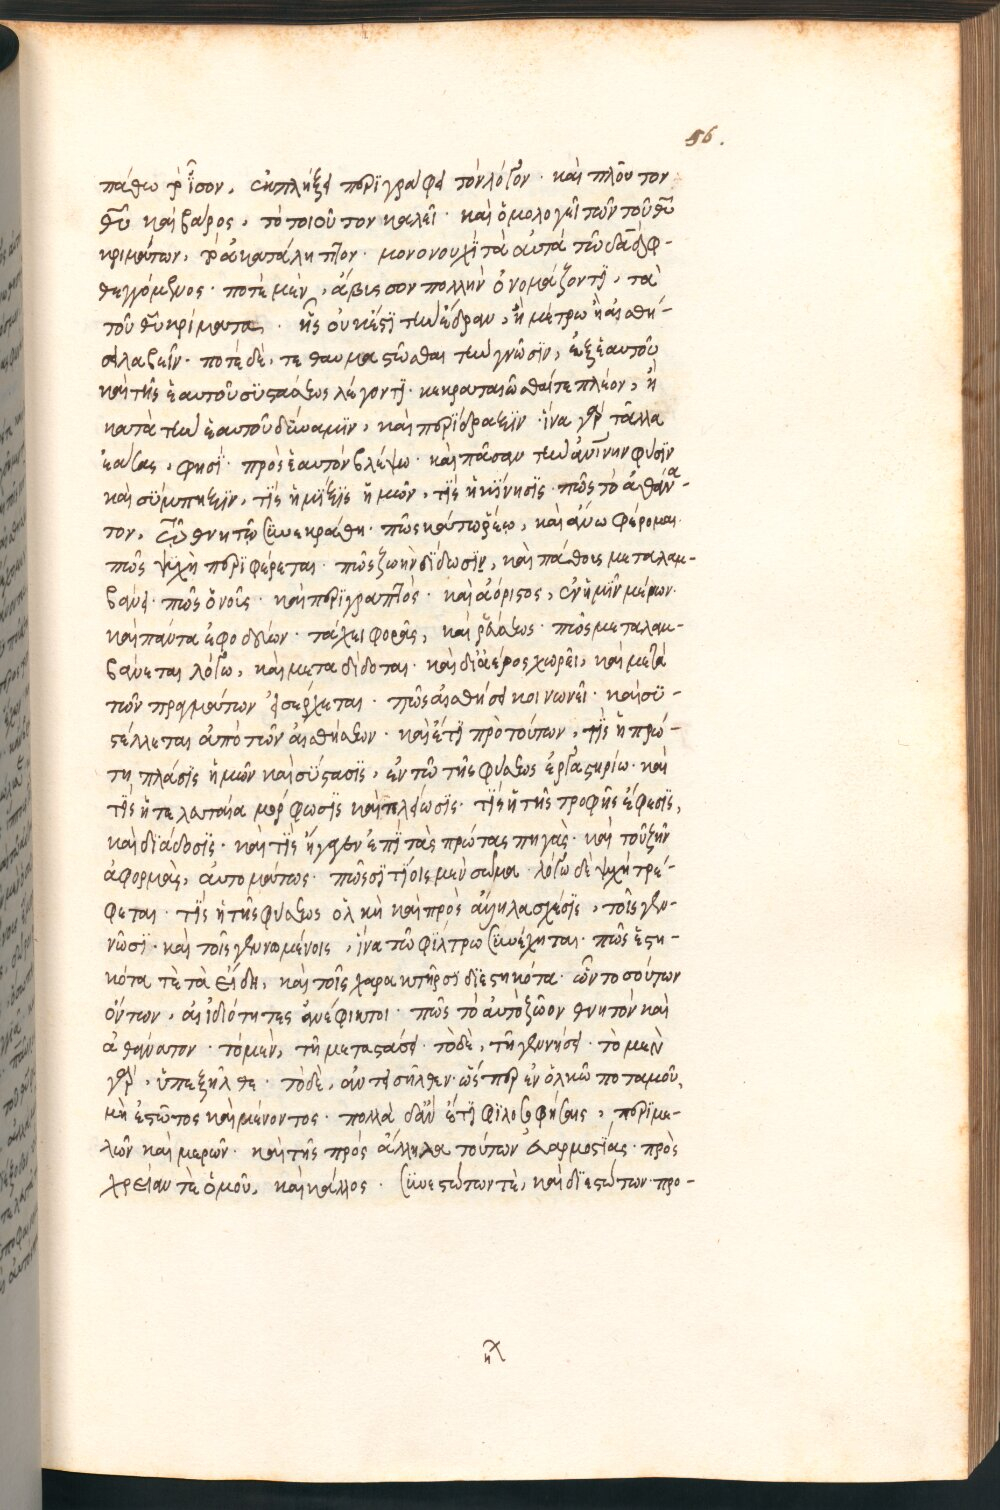 56.
πάθω τὸ ἴσον, ἐκπλήξει περιγράφει τὸν λόγον· καὶ πλοῦτον
θῦ καὶ βάθος, τὸ τοιοῦτον καλεῖ· καὶ ὁμολογεῖ τῶν τοῦ θῦ
κριμάτων, τὸ ἀκατάληπτον· μονονουχὶ τὰ αὐτὰ τῶ δαδ φ-
θεγγόμενος· ποτὲ μὲν, ἄβυσσον πολλὴν ὀνομάζοντι, τὰ
τοῦ θῦ κρίματα, · ἧς οὐκ ἔστι τὴν ἕδραν, ἢ μέτρω ἢ αἰσθή-
σει λαβεῖν· ποτὲ δὲ, τεθαυμαστῶσθαι τὴν γνῶσιν, ἐξ ἑαυτοῦ
καὶ τῆς ἑαυτοῦ συστάσεως λέγοντι· κεκραταιῶσθαί τε πλέον, ἢ
κατὰ τὴν ἑαυτοῦ δύναμιν, καὶ περίδραξιν· ἵνα γὰρ τἄλλα
ἐάσας, φησὶ· πρὸς ἑαυτὸν βλέψω· καὶ πᾶσαν τὴν ἀνίνην φύσιν
καὶ σύμπηξιν, τίς ἡ μίξις ἡμῶν, τίς ἡ κίνησις· πῶς τὸ ἀθάνα-
τον, τῶ θνητῶ συνεκράθη· πῶς κάτω ῥέω, καὶ ἄνω φέρομαι·
πῶς ψυχὴ περιφέρεται· πῶς ζωὴν δίδωσιν, καὶ πάθους μεταλαμ-
βάνει· πῶς ὁ νοῦς· καὶ περιγραπτὸς· καὶ ἀόριστος, ἐν ἡμῖν μένων·
καὶ πάντα ἐφοδεύων· τάχει φορᾶς, καὶ ῥεύσεως· πῶς μεταλαμ-
βάνεται λόγω, καὶ μεταδίδοται· καὶ δι' ἀέρος χωρεῖ, καὶ μετὰ
τῶν πραγμάτων εἰσέρχεται· πῶς αἰσθήσει κοινωνεῖ· καὶ συ-
στέλλεται ἀπὸ τῶν αἰσθήσεων· καὶ ἔτι πρὸ τούτων, τίς ἡ πρώ-
τη πλάσις ἡμῶν καὶ σύστασις, ἐν τῶ τῆς φύσεως ἐργαστηρίω· καὶ
τίς ἡ τελευταία μόρφωσις καὶ τελείωσις· τίς ἡ τῆς τροφῆς ἔφεσις,
καὶ διάδοσις· καὶ τίς ἤγαγεν ἐπὶ τὰς πρώτας πηγὰς· καὶ τοῦ ζῆν
ἀφορμὰς, αὐτομάτως· πῶς σιτίοις μὲν σῶμα· λόγω δὲ ψυχὴ τρέ-
φεται· τίς ἡ τῆς φύσεως ὁλκὴ καὶ πρὸς ἄλληλα σχέσις, τοῖς γεν-
νῶσι· καὶ τοῖς γεννωμένοις, ἵνα τῶ φίλτρω συνέχηται· πῶς ἑστη-
κότα τὲ τὰ εἴδη, καὶ τοῖς χαρακτῆρσι διεστηκότα· ὧν τοσούτων
ὄντων, αἱ ἰδιότητες ἀνέφικτοι· πῶς τὸ αὐτὸ ζῶον θνητὸν καὶ
ἀθάνατον· τὸ μὲν, τῆ μεταστάσει· τὸ δὲ, τῆ γεννήσει· τὸ μὲν
γὰρ, ὑπεξῆλθε· τὸ δὲ, ἀντεισῆλθεν· ὥσπερ ἐν ὁλκῶ ποταμοῦ,
μὴ ἑστῶτος καὶ μένοντος· πολλὰ δ' ἂν ἔτι φιλοσοφήσαις, περὶ με-
λῶν καὶ μερῶν· καὶ τῆς πρὸς ἄλληλα τούτων εὐαρμοστίας· πρὸς
χρείαν τὲ ὁμοῦ, καὶ κάλλος· συνεστώτων τὲ, καὶ διεστώτων προ-